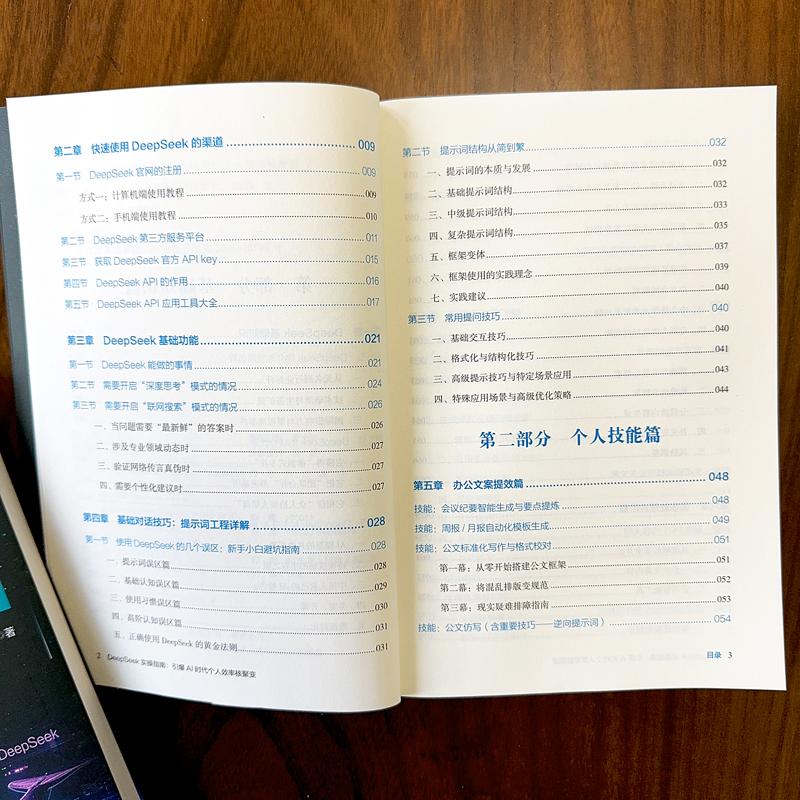 第二章 快速使用 DeepSeek 的渠道 009
第一节 DeepSeek 官网的注册 009
方式一：计算机端使用教程 009
方式二：手机端使用教程 010
第二节 DeepSeek 第三方服务平台 011
第三节 获取 DeepSeek 官方 API key 015
第四节 DeepSeek API 的作用 016
第五节 DeepSeek API 应用工具大全 017
第三章 DeepSeek 基础功能 021
第一节 DeepSeek 能做的事情 021
第二节 需要开启“深度思考”模式的情况 024
第三节 需要开启“联网搜索”模式的情况 026
一、当问题需要“最新鲜”的答案时 026
二、涉及专业领域动态时 027
三、验证网络传言真伪时 027
四、需要个性化建议时 027
第四章 基础对话技巧：提示词工程详解 028
第一节 使用 DeepSeek 的几个误区：新手小白避坑指南 028
一、提示词误区篇 028
二、基础认知误区篇 029
三、使用习惯误区篇 030
四、高阶认知误区篇 031
五、正确使用 DeepSeek 的黄金法则 031
2 DeepSeek 实操指南：引爆 AI 时代个人效率核聚变
第二节 提示词结构从简到繁 032
一、提示词的本质与发展 032
二、基础提示词结构 032
三、中级提示词结构 033
四、复杂提示词结构 035
五、框架变体 037
六、框架使用的实践理念 039
七、实践建议 040
第三节 常用提问技巧 040
一、基础交互技巧 040
二、格式化与结构化技巧 041
三、高级提示技巧与特定场景应用 043
四、特殊应用场景与高级优化策略 044
第二部分 个人技能篇
第五章 办公文案提效篇 048
技能：会议纪要智能生成与要点提炼 048
技能：周报 / 月报自动化模板生成 049
技能：公文标准化写作与格式校对 051
第一幕：从零开始搭建公文框架 051
第二幕：将混乱排版变规范 052
第三幕：现实疑难排障指南 053
技能：公文仿写（含重要技巧——逆向提示词） 054
目录 3
著
DeepSeek